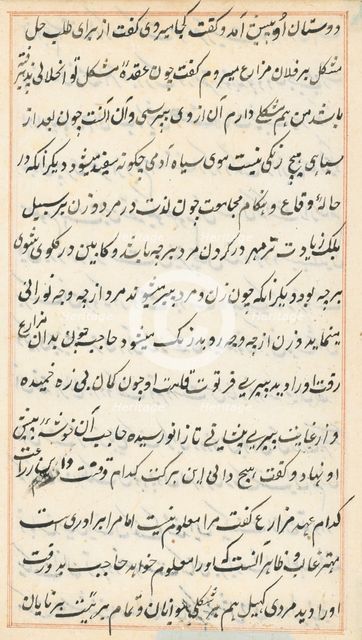 دوستان او پیش آمد و گفت کجا میروی گفت از برای طلب حل
مشکل بر فلان مزارع میروم گفت چون عقدهٔ مشکل تو انحلال پذیرفته
باشد من هم مشکلی دارم آن از وی بپرسی و آن آنست چون بعد از
سیاهی هیچ رنگی نیست موی سیاه آدمی چگونه سفید میشود دیگر آنکه در
حالهٔ وقاع و هنگام مجامعت چون لذت در مرد و زن بر سبیل
زیادت تر مهر در گردن مرد بر چه باشد و کابین در گلوی شوی
بر چه بود دیگر آنکه چون زن و مرد پیر میشوند مرد از چه وجه نورانی
مینماید و زن از چه وجه زرد رنگ میشود حاجب چون بدان مزارع
رفت او را دید پیری فرتوت قامت او چون کمان بی زه خمیده
و از غایت پیری تا ز انو رسیده حاجب آن خوشه پیش
او نهاد و گفت هیچ دانی این برکت کدام وقت و این زراعت
کدام عهد مزارع گفت مرا معلوم نیست اما مرا برادری است
مهتر غالب و ظاهر آنست که او را معلوم خواهد حاجب بدو رفت
او را دید مردی کهیل هم بر شکل میوه زنان و عام بر هیئت برنایان